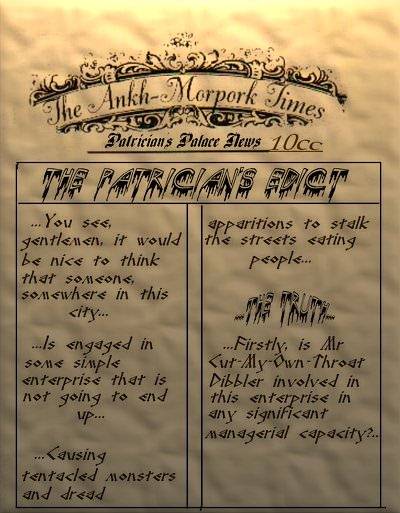 The Ankh-Morpork Times
Patricians Palace News 10cc
THE PATRICIAN'S EDICT
...You see,
gentlemen, it would
be nice to think
that someone,
somewhere in this
city...
...Is engaged in
some simple
enterprise that is
not going to end
up...
...Causing
tentacled monsters
and dread
apparitions to stalk
the streets eating
people...
...THE TRUTH...
...Firstly, is Mr
Cut-My-Own-Throat
Dibbler involved in
this enterprise in
any significant
managerial capacity?..